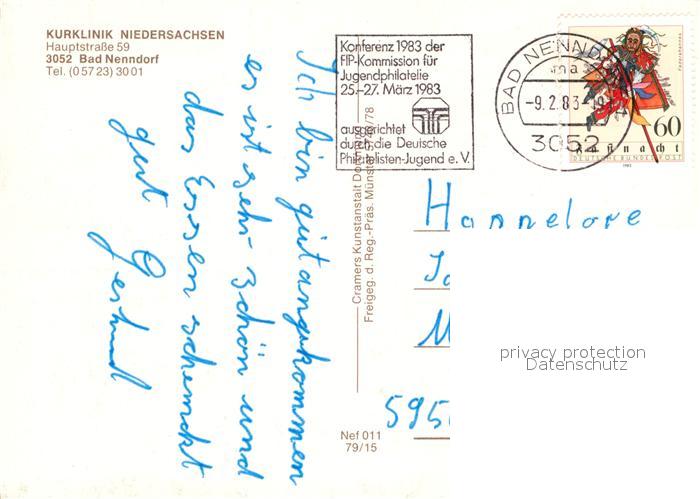 KURKLINIK NIEDERSACHSEN
Hauptstraße 59
3052 Bad Nenndorf
Tel. (0 57 23) 30 01
Ich bin gut angekommen
es ist sehr schön und
das Essen schmeckt
gut
Konferenz 1983 der
FIP-Kommission für
Jugendphilatelie
25.–27. März 1983
ausgerichtet
durch die Deutsche
Philatelisten-Jugend e. V.
BAD NENND
-9.2.83-
3052
60
Fastnacht
DEUTSCHE BUNDESPOST
Cramers Kunstanstalt
Freigeg. d. Reg.-Präs. Münster
/78
Hannelore
M
595
Nef 011
79/15
privacy protection
Datenschutz